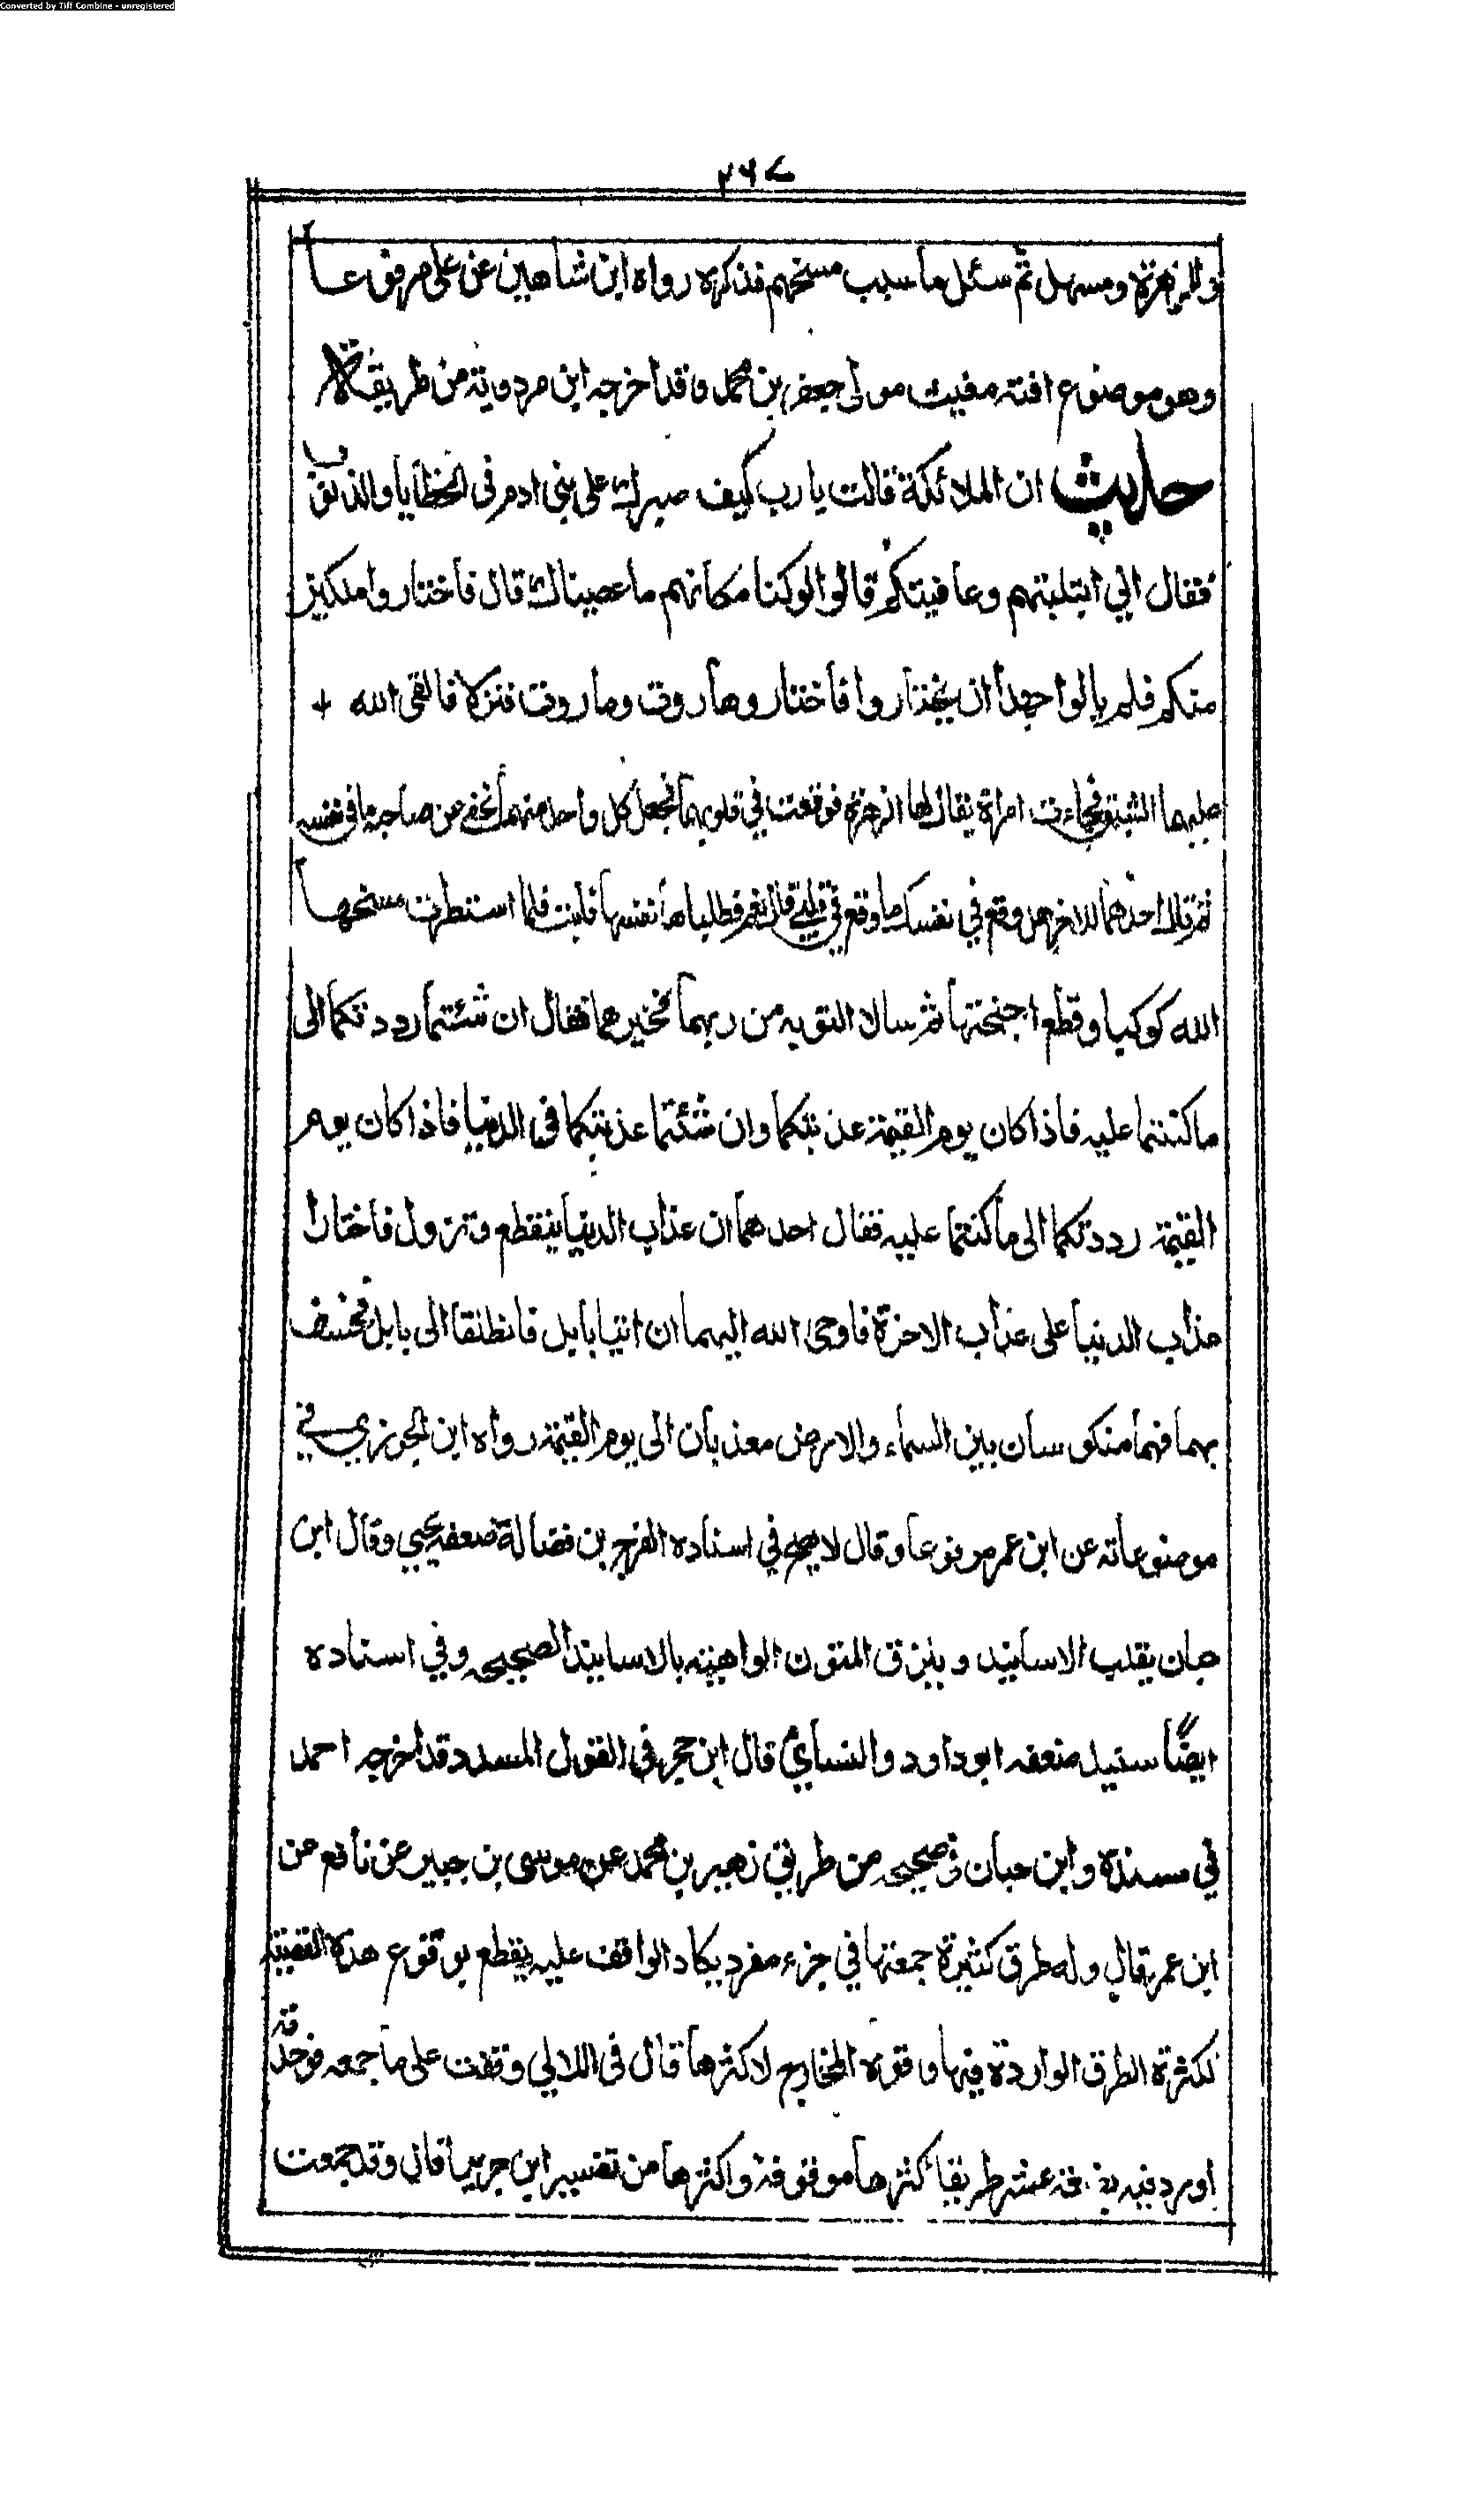 Converted by Tiff Combine - unregistered
٢٦٧
والزهرة وسهيل ثم سئل ما سبب مسخهم فذكره رواه ابن شاهين عن علي مرفوعا
وهو موضوع افته مغيث مولى جعفر بن محمد وقد اخرجه ابن مردوية من طريقه
حديث ان الملائكة قالت يا رب كيف صبرك على بني ادم في الخطايا والذنوب
فقال اني ابتليتهم وعافيتكم قالوا لو كنا مكانهم ما عصيناك قال فاختاروا ملكين
منكم فلم يالوا جهدا ان يختاروا فاختاروها روت وماروت فنزلا فالقى الله +
عليهما الشبق فجاءت امراة يقال لها الزهرة فوقعت في قلوبهما فجعل كل واحد منهما يخفي عن صاحبه ما في نفسه
ثم قال احدهما للاخر هل وقع في نفسك ما وقع في قلبي قال نعم فطلباها نفسها فابت فلما استطهرت مسخها
الله كوكبا وقطع اجنحتها ثم سالا التوبه من ربهما فخيرهما فقال ان شئتما رددتكما الى
ما كنتما عليه فاذا كان يوم القيمة عذبتكما وان شئتما عذبتكما في الدنيا فاذا كان يوم
القيمة رددتكما الى ما كنتما عليه فقال احدهما ان عذاب الدنيا ينقطع وتزول فاختارا
عذاب الدنيا على عذاب الاخرة فاوحى الله اليهما ان ائتيا بابل فانطلقا الى بابل فخسف
بهما فهما منكوسان بين السماء والارض معذبان الى يوم القيمة رواه ابن الجوزي في
موضوعاته عن ابن عمر مرفوعا وقال لا يصح في اسناده الفرج بن فضالة ضعفه يحيى وقال ابن
حبان يقلب الاسانيد ويلزق المتون الواهيه بالاسانيد الصحيحه وفي اسناده
ايضًا سنيد ضعفه ابوداود والنسائي قال ابن حجر في القول المسدد قد اخرجه احمد
في مسنده وابن حبان في صحيحه من طريق زهير بن محمد عن موسى بن جبير عن نافع عن
ابن عمر قال وله طرق كثيرة جمعتها في جزء مفرد يكاد الواقف عليه يقطع بوقوع هذه القصية
لكثرة الطرق الواردة فيها وقوه المخارج لاكثرها قال في اللالي وقفت على ما جمعه فوجدته
اورد فيه عشر طريقا اكثرها موقوفة واكثرها من تفسير ابن جرير قال وقد جمعت